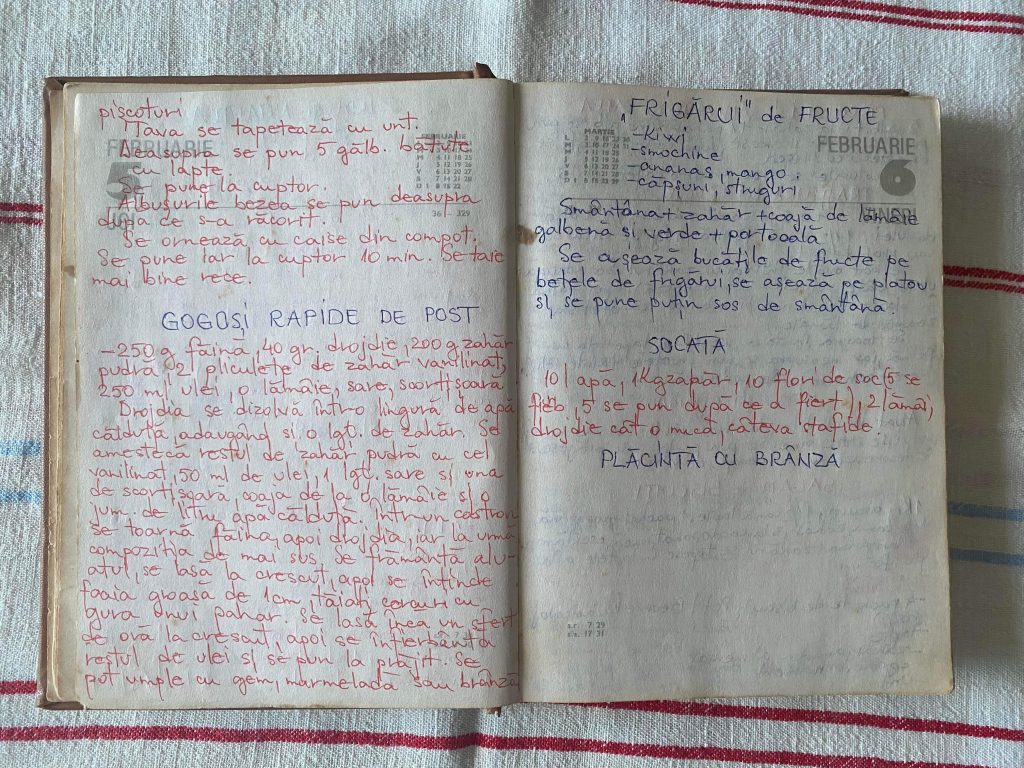 pișcoturi
Tava se tapetează cu unt.
Deasupra se pun 5 gălb. bătute
cu lapte.
Se pune la cuptor.
Albușurile bezea se pun deasupra
după ce s-a răcorit.
Se ornează cu caise din compot.
Se pune iar la cuptor 10 min. Se taie
mai bine rece.
FEBRUARIE
5
JOI
36 - 329
GOGOȘI RAPIDE DE POST
-250 g făină, 40 gr. drojdie, 200 g zahăr
pudră, 2 pliculețe de zahăr vanilinat,
250 ml ulei, o lămâie, sare, scorțișoară
Drojdia se dizolvă într-o lingură de apă
călduță, adaugând și o lgt. de zahăr. Se
amestecă restul de zahăr pudră cu cel
vanilinat, 50 ml de ulei, 1 lgt. sare și una
de scorțișoară, coaja de la o lămâie și o
jum. de litru apă călduță. Într-un castron
se toarnă făina, apoi drojdia, iar la urmă
compoziția de mai sus. Se frământă alu-
atul, se lasă la crescut, apoi se întinde
foaia groasă de 1cm, tăiați cercuri cu
gura unui pahar. Se lasă încă un sfert
de oră la crescut, apoi se înfierbântă
restul de ulei și se pun la prăjit. Se
pot umple cu gem, marmeladă sau brânză
„FRIGĂRUI" de FRUCTE
-Kiwi
-smochine
-ananas, mango.
-căpșuni, struguri
MARTIE
FEBRUARIE
6
VINERI
Smântână + zahăr + coajă de lămâie
galbenă si verde + portocală
Se așează bucățile de fructe pe
bețele de frigărui, se așează pe platou
și se pune puțin sos de smântână.
SOCATĂ
10 l apă, 1Kg zahăr, 10 flori de soc (5 se
fierb, 5 se pun după ce a fiert), 2 lămâi,
drojdie cât o nucă, câteva stafide.
PLĂCINTĂ CU BRÂNZĂ
s.r. 7 29
s.s. 17 31